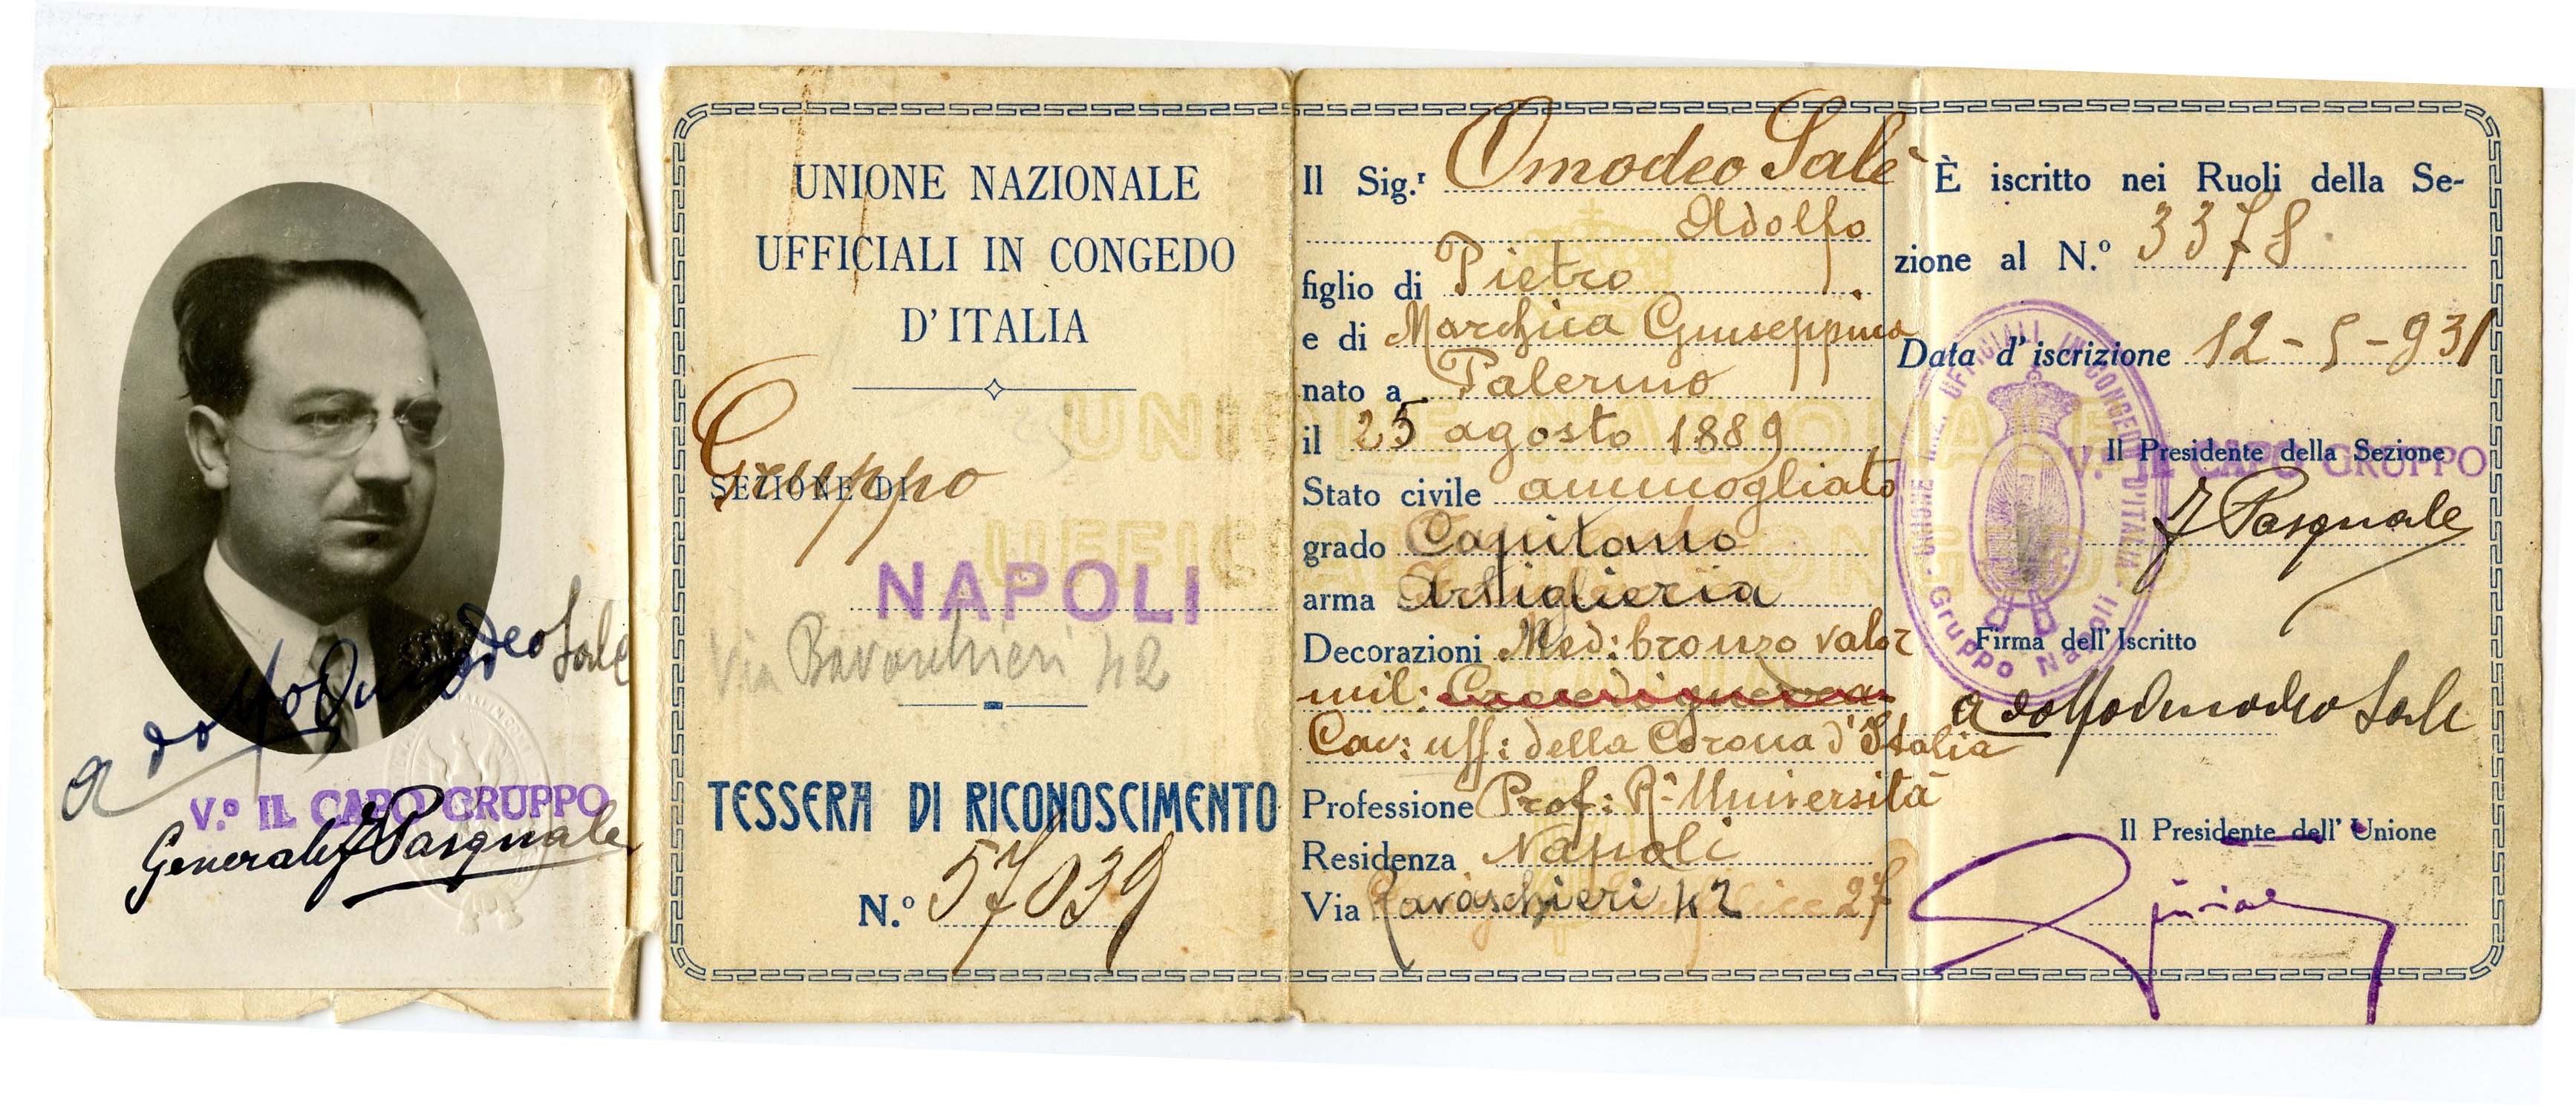 adolfo Omodeo Salè
V.º IL CAPO GRUPPO
Generale Pasquale
UNIONE NAZIONALE
UFFICIALI IN CONGEDO
D'ITALIA
Gruppo
SEZIONE DI
NAPOLI
Via 42
TESSERA DI RICONOSCIMENTO
N.º 57039
Il Sig.r Omodeo Salè
Adolfo
figlio di Pietro
e di Marchica Giuseppina
nato a Palermo
il 25 agosto 1889
Stato civile ammogliato
grado Capitano
arma Artiglieria
Decorazioni Med: bronzo valor
mil: Croce di guerra
Cav: uff: della Corona d'Italia
Professione Prof: R. Università
Residenza Napoli
Via Ravaschieri 42 27
È iscritto nei Ruoli della Se-
zione al N.º 3378
Data d'iscrizione 12-5-931
UNIONE NAZ. UFFICIALI IN CONGEDO D'ITALIA
Gruppo Napoli
Il Presidente della Sezione
V.º IL CAPO GRUPPO
Pasquale
Firma dell'Iscritto
adolfo Omodeo Salè
Il Presidente dell'Unione
UNIONE NAZIONALE
UFFICIALI IN CONGEDO
D'ITALIA